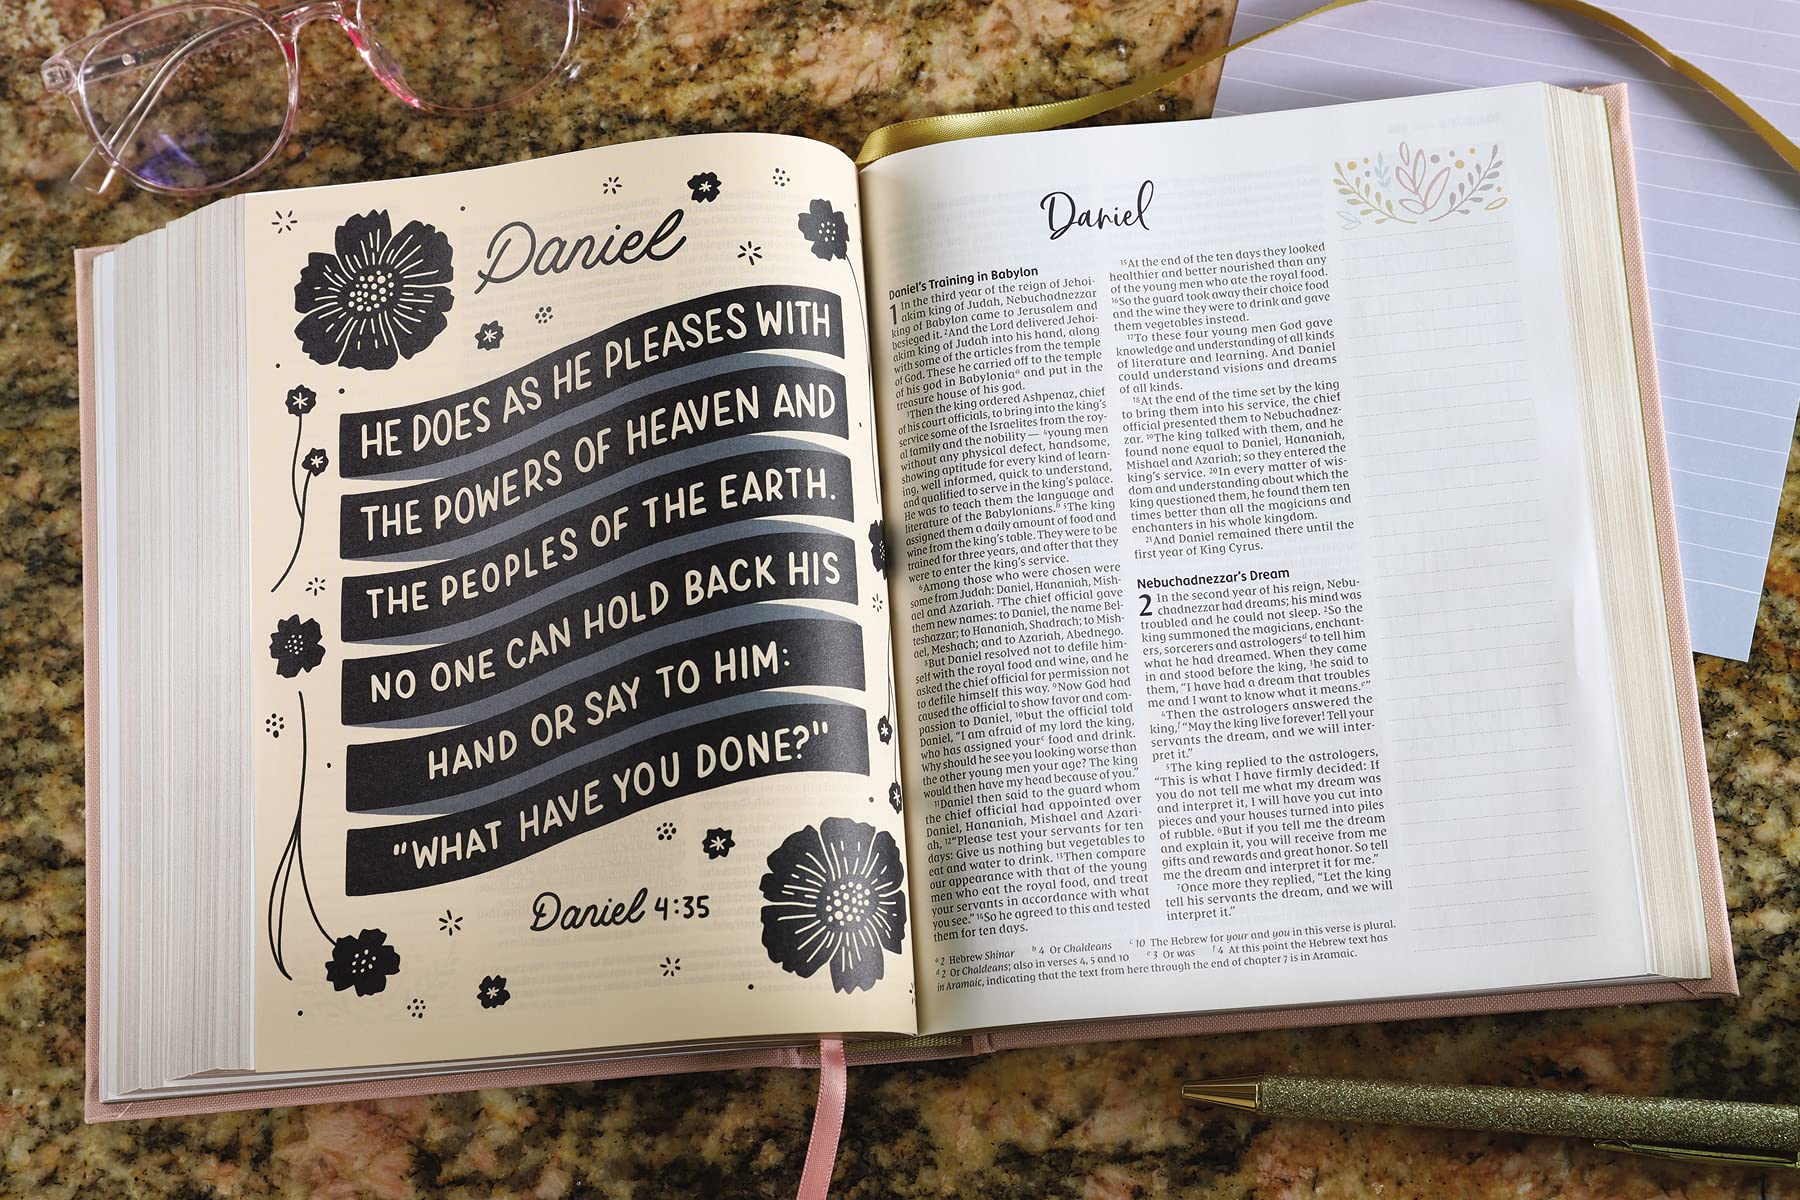 Daniel
HE DOES AS HE PLEASES WITH
THE POWERS OF HEAVEN AND
THE PEOPLES OF THE EARTH.
NO ONE CAN HOLD BACK HIS
HAND OR SAY TO HIM:
"WHAT HAVE YOU DONE?"
Daniel 4:35
Daniel
Daniel's Training in Babylon
1 In the third year of the reign of Jehoi-
akim king of Judah, Nebuchadnezzar
king of Babylon came to Jerusalem and
besieged it. 2And the Lord delivered Jehoi-
akim king of Judah into his hand, along
with some of the articles from the temple
of God. These he carried off to the temple
of his god in Babyloniaa and put in the
treasure house of his god.
3Then the king ordered Ashpenaz, chief
of his court officials, to bring into the king's
service some of the Israelites from the roy-
al family and the nobility — 4young men
without any physical defect, handsome,
showing aptitude for every kind of learn-
ing, well informed, quick to understand,
and qualified to serve in the king's palace.
He was to teach them the language and
literature of the Babylonians.b 5The king
assigned them a daily amount of food and
wine from the king's table. They were to be
trained for three years, and after that they
were to enter the king's service.
6Among those who were chosen were
some from Judah: Daniel, Hananiah, Mish-
ael and Azariah. 7The chief official gave
them new names: to Daniel, the name Bel-
teshazzar; to Hananiah, Shadrach; to Mish-
ael, Meshach; and to Azariah, Abednego.
8But Daniel resolved not to defile him-
self with the royal food and wine, and he
asked the chief official for permission not
to defile himself this way. 9Now God had
caused the official to show favor and com-
passion to Daniel, 10but the official told
Daniel, "I am afraid of my lord the king,
who has assigned yourc food and drink.
Why should he see you looking worse than
the other young men your age? The king
would then have my head because of you."
11Daniel then said to the guard whom
the chief official had appointed over
Daniel, Hananiah, Mishael and Azari-
ah, 12"Please test your servants for ten
days: Give us nothing but vegetables to
eat and water to drink. 13Then compare
our appearance with that of the young
men who eat the royal food, and treat
your servants in accordance with what
you see." 14So he agreed to this and tested
them for ten days.
15At the end of the ten days they looked
healthier and better nourished than any
of the young men who ate the royal food.
16So the guard took away their choice food
and the wine they were to drink and gave
them vegetables instead.
17To these four young men God gave
knowledge and understanding of all kinds
of literature and learning. And Daniel
could understand visions and dreams
of all kinds.
18At the end of the time set by the king
to bring them into his service, the chief
official presented them to Nebuchadnez-
zar. 19The king talked with them, and he
found none equal to Daniel, Hananiah,
Mishael and Azariah; so they entered the
king's service. 20In every matter of wis-
dom and understanding about which the
king questioned them, he found them ten
times better than all the magicians and
enchanters in his whole kingdom.
21And Daniel remained there until the
first year of King Cyrus.
Nebuchadnezzar's Dream
2 In the second year of his reign, Nebu-
chadnezzar had dreams; his mind was
troubled and he could not sleep. 2So the
king summoned the magicians, enchant-
ers, sorcerers and astrologersd to tell him
what he had dreamed. When they came
in and stood before the king, 3he said to
them, "I have had a dream that troubles
me and I want to know what it means.e"
4Then the astrologers answered the
king,f "May the king live forever! Tell your
servants the dream, and we will inter-
pret it."
5The king replied to the astrologers,
"This is what I have firmly decided: If
you do not tell me what my dream was
and interpret it, I will have you cut into
pieces and your houses turned into piles
of rubble. 6But if you tell me the dream
and explain it, you will receive from me
gifts and rewards and great honor. So tell
me the dream and interpret it for me."
7Once more they replied, "Let the king
tell his servants the dream, and we will
interpret it."
a 2 Hebrew Shinar b 4 Or Chaldeans c 10 The Hebrew for your and you in this verse is plural.
d 2 Or Chaldeans; also in verses 4, 5 and 10 e 3 Or was f 4 At this point the Hebrew text has
in Aramaic, indicating that the text from here through the end of chapter 7 is in Aramaic.